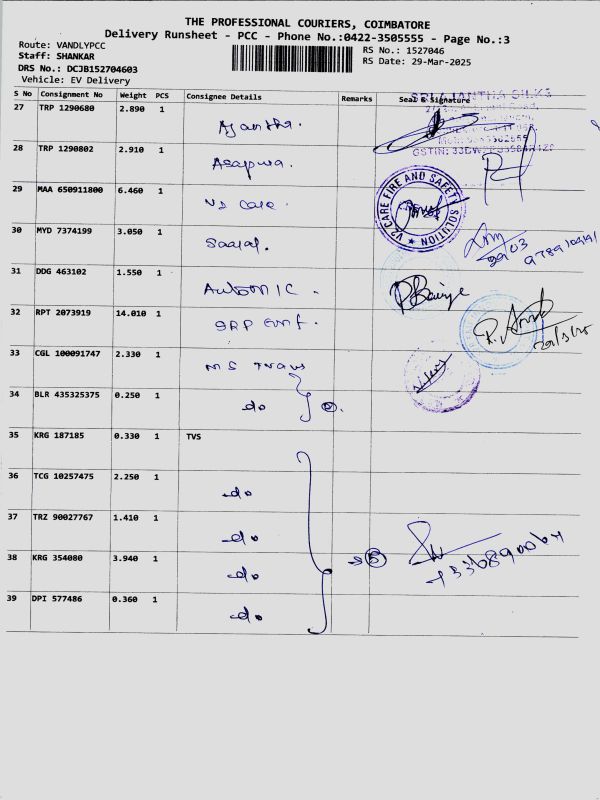 THE PROFESSIONAL COURIERS, COIMBATORE
Delivery Runsheet - PCC - Phone No.:0422-3505555 - Page No.:3
Route: VANDLYPCC
Staff: SHANKAR
DRS No.: DCJB152704603
Vehicle: EV Delivery
RS No.: 1527046
RS Date: 29-Mar-2025
S No Consignment No Weight PCS Consignee Details Remarks Seal & Signature
27 TRP 1290680 2.890 1 Ajantha.
28 TRP 1290802 2.910 1 Asapura.
29 MAA 650911800 6.460 1 V2 Care.
V2 CARE FIRE AND SAFETY SOLUTION
30 MYD 7374199 3.050 1
31 DDG 463102 1.550 1
32 RPT 2073919 14.010 1
33 CGL 100091747 2.330 1 MS Trans
34 BLR 435325375 0.250 1 do 2.
35 KRG 187185 0.330 1 TVS
36 TCG 10257475 2.250 1 do
37 TRZ 90027767 1.410 1 do
38 KRG 354080 3.940 1 do 5
39 DPI 577486 0.360 1 do